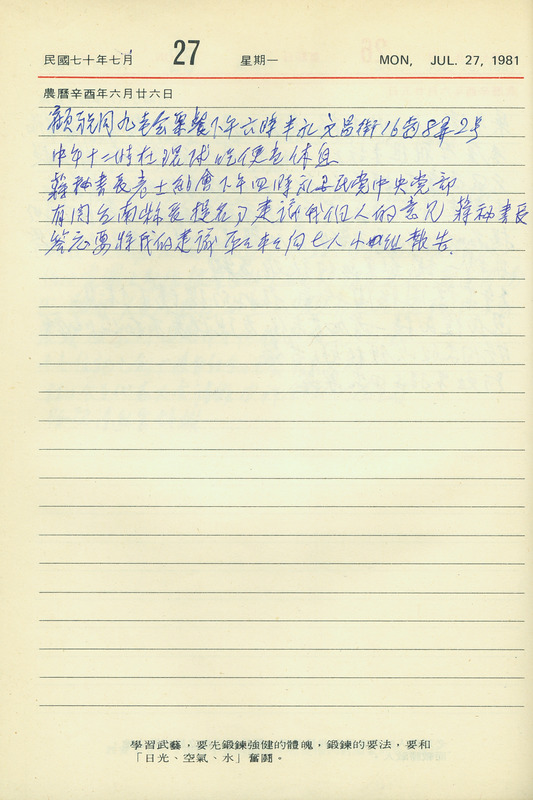 民國七十年七月 27 星期一 MON, JUL. 27, 1981
農曆辛酉年六月廿六日
顧 同九老會聚餐下午六時半永文昌街16巷8弄2号
中午十二時在環球 休息
蔣秘書長彥士約會下午四時永昌民党中央党部
有関台南縣長提名 建議我個人的意見 蔣秘書長
答应要將我的建議 向七人小組報告.
學習武藝，要先鍛鍊強健的體魄，鍛鍊的要法，要和
「日光、空氣、水」奮鬪。